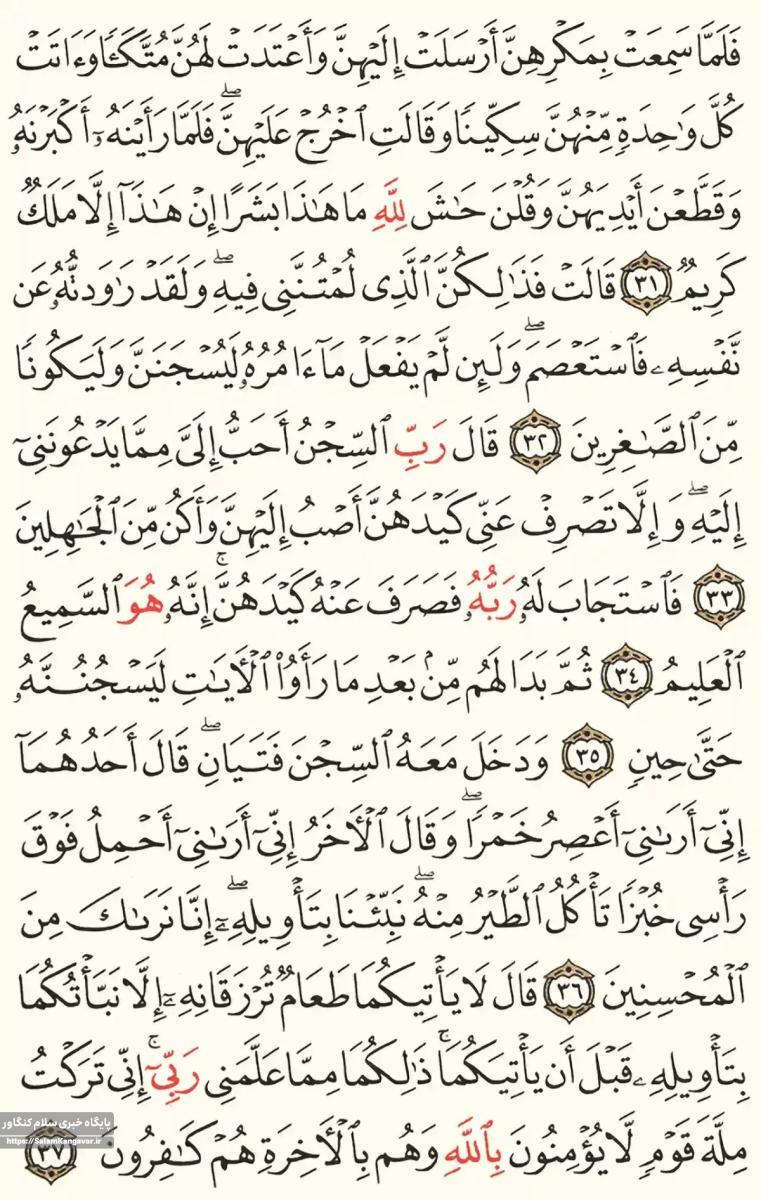 فَلَمَّا سَمِعَتْ بِمَكْرِهِنَّ أَرْسَلَتْ إِلَيْهِنَّ وَأَعْتَدَتْ لَهُنَّ مُتَّكَـًٔا وَءَاتَتْ
كُلَّ وَٰحِدَةٍ مِّنْهُنَّ سِكِّينًا وَقَالَتِ ٱخْرُجْ عَلَيْهِنَّۖ فَلَمَّا رَأَيْنَهُۥٓ أَكْبَرْنَهُۥ
وَقَطَّعْنَ أَيْدِيَهُنَّ وَقُلْنَ حَٰشَ لِلَّهِ مَا هَٰذَا بَشَرًا إِنْ هَٰذَآ إِلَّا مَلَكٌ
كَرِيمٌ ٣١ قَالَتْ فَذَٰلِكُنَّ ٱلَّذِى لُمْتُنَّنِى فِيهِۖ وَلَقَدْ رَٰوَدتُّهُۥ عَن
نَّفْسِهِۦ فَٱسْتَعْصَمَۖ وَلَئِن لَّمْ يَفْعَلْ مَآ ءَامُرُهُۥ لَيُسْجَنَنَّ وَلَيَكُونًا
مِّنَ ٱلصَّٰغِرِينَ ٣٢ قَالَ رَبِّ ٱلسِّجْنُ أَحَبُّ إِلَىَّ مِمَّا يَدْعُونَنِىٓ
إِلَيْهِۖ وَإِلَّا تَصْرِفْ عَنِّى كَيْدَهُنَّ أَصْبُ إِلَيْهِنَّ وَأَكُن مِّنَ ٱلْجَٰهِلِينَ
٣٣ فَٱسْتَجَابَ لَهُۥ رَبُّهُۥ فَصَرَفَ عَنْهُ كَيْدَهُنَّۚ إِنَّهُۥ هُوَ ٱلسَّمِيعُ
ٱلْعَلِيمُ ٣٤ ثُمَّ بَدَا لَهُم مِّنۢ بَعْدِ مَا رَأَوُا۟ ٱلْـَٔايَٰتِ لَيَسْجُنُنَّهُۥ
حَتَّىٰ حِينٍ ٣٥ وَدَخَلَ مَعَهُ ٱلسِّجْنَ فَتَيَانِۖ قَالَ أَحَدُهُمَآ
إِنِّىٓ أَرَىٰنِىٓ أَعْصِرُ خَمْرًاۖ وَقَالَ ٱلْـَٔاخَرُ إِنِّىٓ أَرَىٰنِىٓ أَحْمِلُ فَوْقَ
رَأْسِى خُبْزًا تَأْكُلُ ٱلطَّيْرُ مِنْهُۖ نَبِّئْنَا بِتَأْوِيلِهِۦٓۖ إِنَّا نَرَىٰكَ مِنَ
ٱلْمُحْسِنِينَ ٣٦ قَالَ لَا يَأْتِيكُمَا طَعَامٌ تُرْزَقَانِهِۦٓ إِلَّا نَبَّأْتُكُمَا
بِتَأْوِيلِهِۦ قَبْلَ أَن يَأْتِيَكُمَاۚ ذَٰلِكُمَا مِمَّا عَلَّمَنِى رَبِّىٓۚ إِنِّى تَرَكْتُ
مِلَّةَ قَوْمٍ لَّا يُؤْمِنُونَ بِٱللَّهِ وَهُم بِٱلْـَٔاخِرَةِ هُمْ كَٰفِرُونَ ٣٧
پایگاه خبری سلام کنگاور
https://SalamKangavar.ir